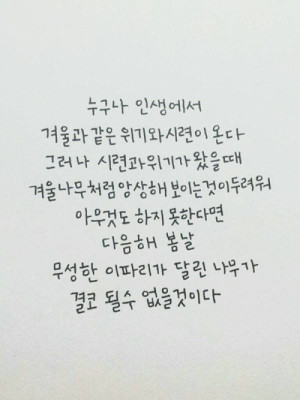 누구나 인생에서
겨울과 같은 위기와 시련이 온다
그러나 시련과 위기가 왔을때
겨울나무처럼 앙상해 보이는 것이 두려워
아무것도 하지 못한다면
다음해 봄날
무성한 이파리가 달린 나무가
결코 될수 없을것이다